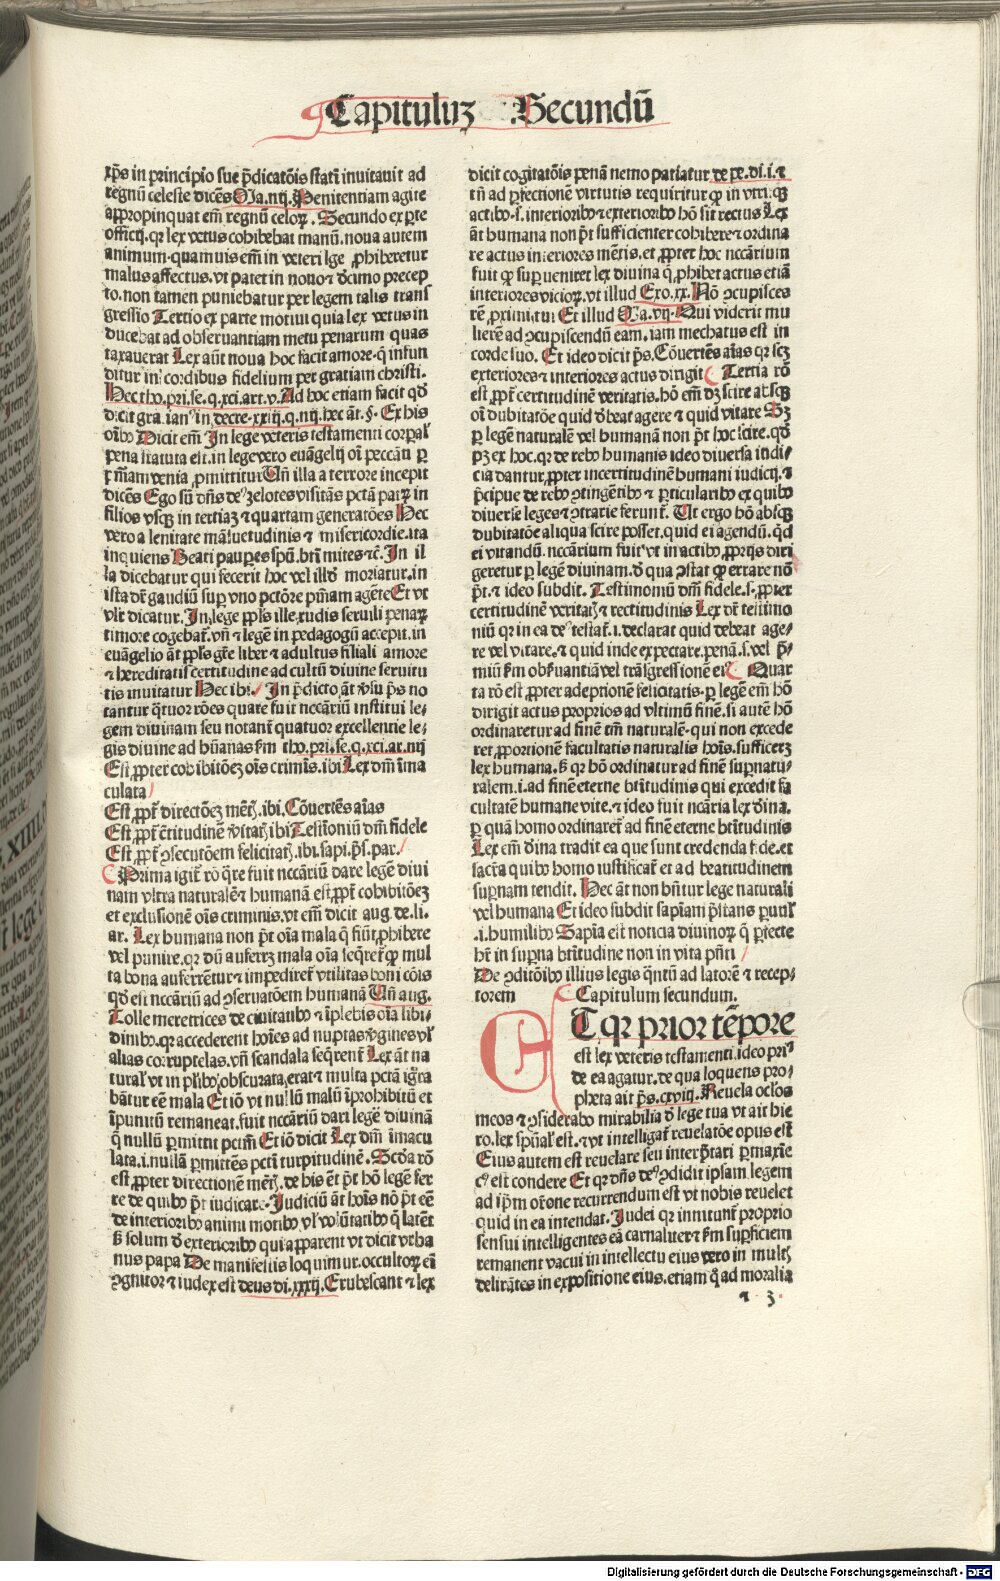 Capituluꝫ Secundū
xp̄s in principio sue p̄dicatōis statī inuitauit ad
regnū celeste dicēs Ma.iiij. Penitentiam agite
appropinquat em̄ regnū celoꝝ. Secundo ex ꝑte
officij. qꝛ lex vetus cohibebat manū. noua autem
animum. quamuis em̄ in veteri lge ꝓhiberetur
malus affectus. vt patet in nono ⁊ dcimo precep
to. non tamen puniebatur per legem talis trans
gressio Tertio ex parte motiui quia lex vetus in
ducebat ad obseruantiam metu penarum quas
taxauerat Lex aūt noua hoc facit amore. q̄ infun
ditur in cordibus fidelium per gratiam christi.
Hec tho. pri. se. q. xci. art. v. Ad hoc etiam facit qd̄
dicit gra. ian⁹ in decre. xxiij. q. iiij. hec āt. §. Ex his
oībꝰ Dicit em̄ In lege veteris testamenti corꝑal̓
pena statuta est. in lege vero euāgelij oī peccāti ꝑ
penitentiam venia ꝓmittitur Vn̄ illa a terrore incepit
dicēs Ego sū dn̄s de⁹ zelotes visitās pctā patꝝ in
filios vsqꝫ in tertiaꝫ ⁊ quartam generatōes Hec
vero a lenitate māsuetudinis ⁊ misericordie. ita
inquiens Beati pauꝑes spū. bt̄i mites ⁊c̄. In il
la dicebatur qui fecerit hoc vel illd̓ moriatur. in
ista dr̄ gaudiū suꝑ vno pctōre pn̄iam agēte Et vt
vl̓r dicatur. In lege ppl̓s ille. rudis seruili penaꝝ
timore cogebat̄. vn̄ ⁊ legē in pedagogū accepit. in
euāgelio āt ppl̓s gr̄e liber ⁊ adultus filiali amore
⁊ hereditatis certitudine ad cultū diuine seruitu
tis inuitatur Hec ibi. In p̄dicto āt v̓su p̄s no
tantur q̄tuor rōes quare fuit nccāriū institui le⸗
gem diuinam seu notant̄ quatuor excellentie le⸗
gis diuine ad hūanas ẜm tho. pri. se. q. xci. ar. iiij
Est ꝓpter cohibitōeꝫ oīs crimīs. ibi Lex dn̄i īma
culata
Est ꝓpt̄ directōeꝫ mēt̄. ibi. Cōuertēs aīas
Est ꝓpt̄ c̄titudinē v̓itat̄. ibi Testīoniū dn̄i fidele
Est ꝓpt̄ ꝯsecutōem felicitat̄. ibi. sapi. p̄s. par.
Prima igit̄ rō q̄re fuit nccāriū dare legē diui
nam vltra naturalē ⁊ humanā est ꝓpt̄ cohibitōeꝫ
et exclusionē oīs criminis. vt em̄ dicit aug. de li.
ar. Lex humana non pt̄ oīa mala q̄ fiūt ꝓhibere
vel punire. qꝛ dū auferꝫ mala oīa seq̄ret̄ ꝙ mul
ta bona auferrētur ⁊ impediret̄ vtilitas boni cōis
qd̄ est nccāriū ad ꝯseruatōem humanā Vn̄ aug.
Tolle meretrices de ciuitatibꝰ ⁊ īplebis oīa libi⸗
dinibꝰ. qꝛ accederent hoīes ad nuptas v̓gines vl̓
alias corruptelas. vn̄ scandala seq̄rent̄ Lex āt na
tural̓ vt in pl̓ibꝰ obscurata erat ⁊ multa pctā ign̄ra
bātur eē mala Et iō vt nullū malū īprohibitū et
īpunitū remaneat. fuit nccāriū dari legē diuinā
q̄ nullū ꝑmittit pctm̄ Et iō dicit Lex dn̄i īmacu
lata. i. nullā ꝑmittēs pctī turpitudinē. Sc̄da rō
est ꝓpter directionem mēt̄. de his em̄ pt̄ hō legē fer
re de quibꝰ pt̄ iudicare. Iudiciū āt hoīs nō pt̄ eē
de interioribꝰ animi motibꝰ vl̓ volūtatibꝰ q̄ latēt
ẜ solum d̓ exterioribꝰ qui apparent vt dicit vrba
nus papa De manifestis loquimur. occultoꝝ eī
ꝯgnitor ⁊ iudex est deus di. xxxij. Erubescant ⁊ lex
dicit cogitatōis penā nemo patiatur de pe. di. i. ⁊
tn̄ ad ꝑfectionē virtutis requiritur ꝙ in vtriqꝫ
actibꝰ. s. interioribꝰ ⁊ exterioribꝰ hō sit rectus Lex
āt humana non pt̄ sufficienter cohibere ⁊ ordina
re actus interiores mētis. et ꝓpter hoc nccārium
fuit ꝙ suꝑueniret lex diuina q̄ ꝓhibet actus etiā
interiores vicioꝝ. vt illud Exo. xx. Nō ꝯcupisces
rē ꝓximi tui Et illud Ma. vij. Qui viderit mu
lierē ad ꝯcupiscendū eam. iam mechatus est in
corde suo. Et ideo dicit p̄s. Cōuertēs aīas qꝛ scꝫ
exteriores ⁊ interiores actus dirigit Tertia rō
est ꝓpt̄ certitudinē veritatis. hō em̄ dꝫ scire absqꝫ
oī dubitatōe quid d̓beat agere ⁊ quid vitare Sꝫ
ꝑ legē naturalē vel humanā non pt̄ hoc scire. qd̄
pꝫ ex hoc. qꝛ de rebꝰ humanis ideo diuersa iudi⸗
cia dantur. ꝓpter incertitudinē humani iudicij. ⁊
p̄cipue de rebꝰ ꝯtingētibꝰ ⁊ ꝑticularibꝰ ex quibꝰ
diuerse leges ⁊ ꝯtrarie ferunt̄. Vt ergo hō absqꝫ
dubitatōe aliqua scire posset. quid ei agendū. qd̄
ei vitandū. nccārium fuit vt in actibꝰ ꝓprijs diri
geretur ꝑ legē diuinam. d̓ qua ꝯstat ꝙ errare nō
pt̄. ⁊ ideo subdit. Testimoniū dn̄i fidele. s. ꝓpter
certitudinē veritat̄ ⁊ rectitudinis Lex dr̄ testimo
niū qꝛ in ea de⁹ testat̄. i. declarat quid debeat age⸗
re vel vitare. ⁊ quid inde expectare. penā. s. vel p̄⸗
miū ẜm obẜuantiā vel trāsgressionē ei⁹ Quar
ta rō est ꝓpter adeptionē felicitatis. ꝑ legē em̄ hō
dirigit actus proprios ad vltimū finē. si autē hō
ordinaretur ad finē tm̄ naturalē. qui non excede
ret ꝓportionē facultatis naturalis hoīs. sufficeꝝ
lex humana. ẜ qꝛ hō ordinatur ad finē suꝑnatu⸗
ralem. i. ad finē eterne bt̄itudinis qui excedit fa
cultatē humane vite. ⁊ ideo fuit ncāria lex d̓ina.
ꝑ quā homo ordinaret̄ ad finē eterne bt̄itudinis
Lex em̄ d̓ina tradit ea que sunt credenda fide. et
sacr̄a quibꝰ homo iustificat̄ et ad beatitudinem
suꝑnam tendit. Hec āt non hn̄tur lege naturali
vel humana Et ideo subdit sapīam p̄stans ꝑuul̓
.i. humilibꝰ Sapīa est noticia diuinoꝝ q̄ ꝑfecte
hr̄ in suꝑna bt̄itudine non in vita pn̄ti
De ꝯditōibꝰ illius legis q̄ntū ad latorē ⁊ recep⸗
torem Capitulum secundum.
ET qꝛ prior tēpore
est lex veteris testamenti. ideo pri⁹
de ea agatur. de qua loquens pro⸗
pheta ait p̄s. cxviij. Reuela oclōs
meos ⁊ ꝯsiderabo mirabilia d̓ lege tua vt ait hie
ro. lex spūal̓ est. ⁊ vt intelligat̄ reuelatōe opus est
Eius autem est reuelare seu interp̄tari ꝑmaxīe
c⁹ est condere Et qꝛ dn̄s de⁹ ꝯdidit ipsam legem
ad ip̄m or̄one recurrendum est vt nobis reuelet
quid in ea intendat. Iudei qꝛ innitunt̄ proprio
sensui intelligentes eā carnaliter ⁊ ẜm suꝑficiem
remanent vacui in intellectu eius vero in mult̄
delirātes in expositione eius. etiam q̄ ad moralia
⁊ 3
Digitalisierung gefördert durch die Deutsche Forschungsgemeinschaft - DFG